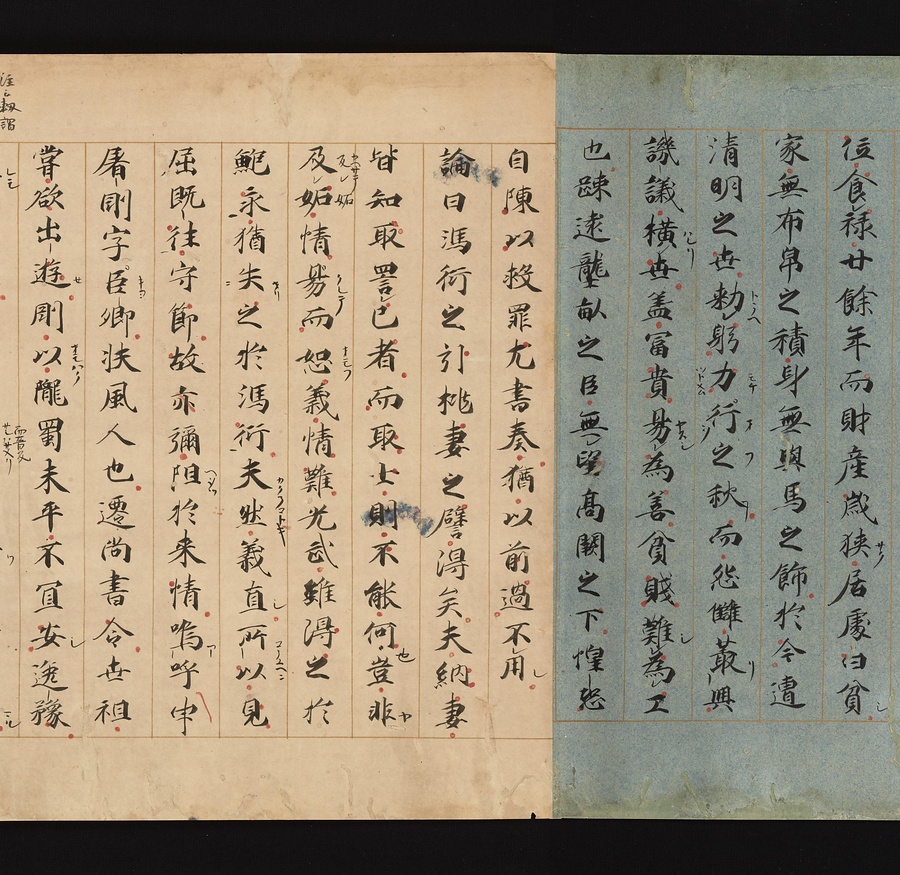 位食祿廿餘年而財產歲狹居處日貧
家無布帛之積身無輿馬之飾於今遭
清明之世勑躬力行之秋而怨讎叢興
譏議橫世盖冨貴易為善貧賤難為工
也踈逺壟畝之臣無望髙闕之下惶怨
自陳以救罪尤書奏猶以前過不用
論曰馮衍之引挑妻之譬得矣夫納妻
皆知取詈己者而取士則不能何也豈非
及妬情易而恕義情難光武雖得之於
鮑永猶失之於馮衍夫然義直所以見
屈旣往守節故亦彌阻於来情嗚呼申
屠剛字臣卿扶風人也遷尚書令世祖
甞欲出遊剛以隴蜀未平不冝安逸豫